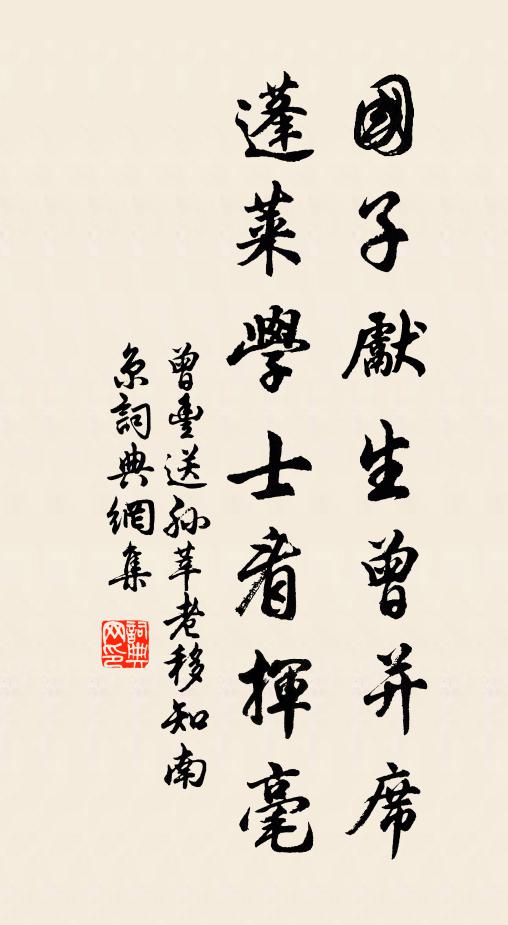 國子獻生曾并席
蓬萊學士看揮毫
曾豐送孫莘老移知南
京詞典網集
詞典
网印